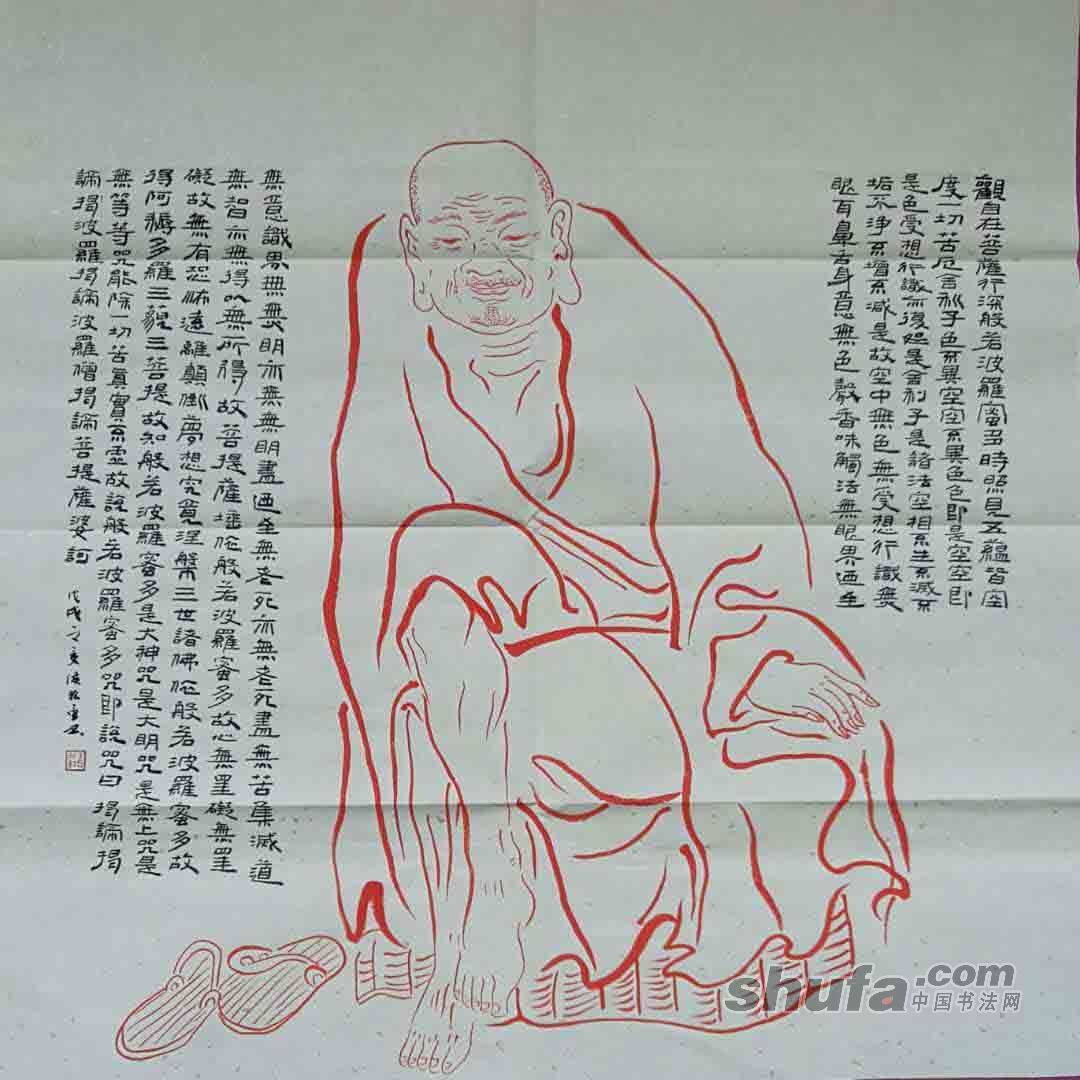 觀自在菩薩行深般若波羅蜜多時照見五蘊皆空
度一切苦厄舍利子色不異空空不異色色即是空空即
是色受想行識亦復如是舍利子是諸法空相不生不滅不
垢不淨不增不減是故空中無色無受想行識無
眼耳鼻舌身意無色聲香味觸法無眼界迺至
無意識界無無明亦無無明盡迺至無老死亦無老死盡無苦集滅道
無智亦無得以無所得故菩提薩埵依般若波羅蜜多故心無罣礙無罣
礙故無有恐怖遠離顛倒夢想究竟涅槃三世諸佛依般若波羅蜜多故
得阿耨多羅三藐三菩提故知般若波羅蜜多是大神咒是大明咒是無上咒是
無等等咒能除一切苦真實不虛故說般若波羅蜜多咒即說咒曰 揭諦揭
諦揭波羅揭諦波羅僧揭諦菩提薩婆訶
戊戌之夏
shufa.com
中国书法网